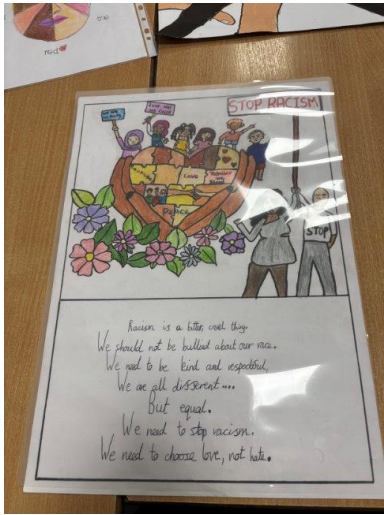 you
STOP RACISM
LOVE
Together we stand
Peace
STOP
Racism is a bitter, cruel thing.
We should not be bullied about our race.
We need to be kind and respectful,
We are all different....
But equal.
We need to stop racism.
We need to choose love, not hate.